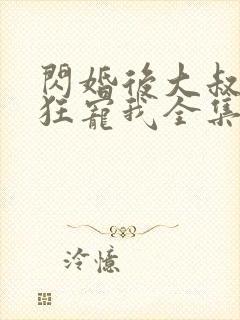 閃婚後大叔
狂寵我全集
冷憶